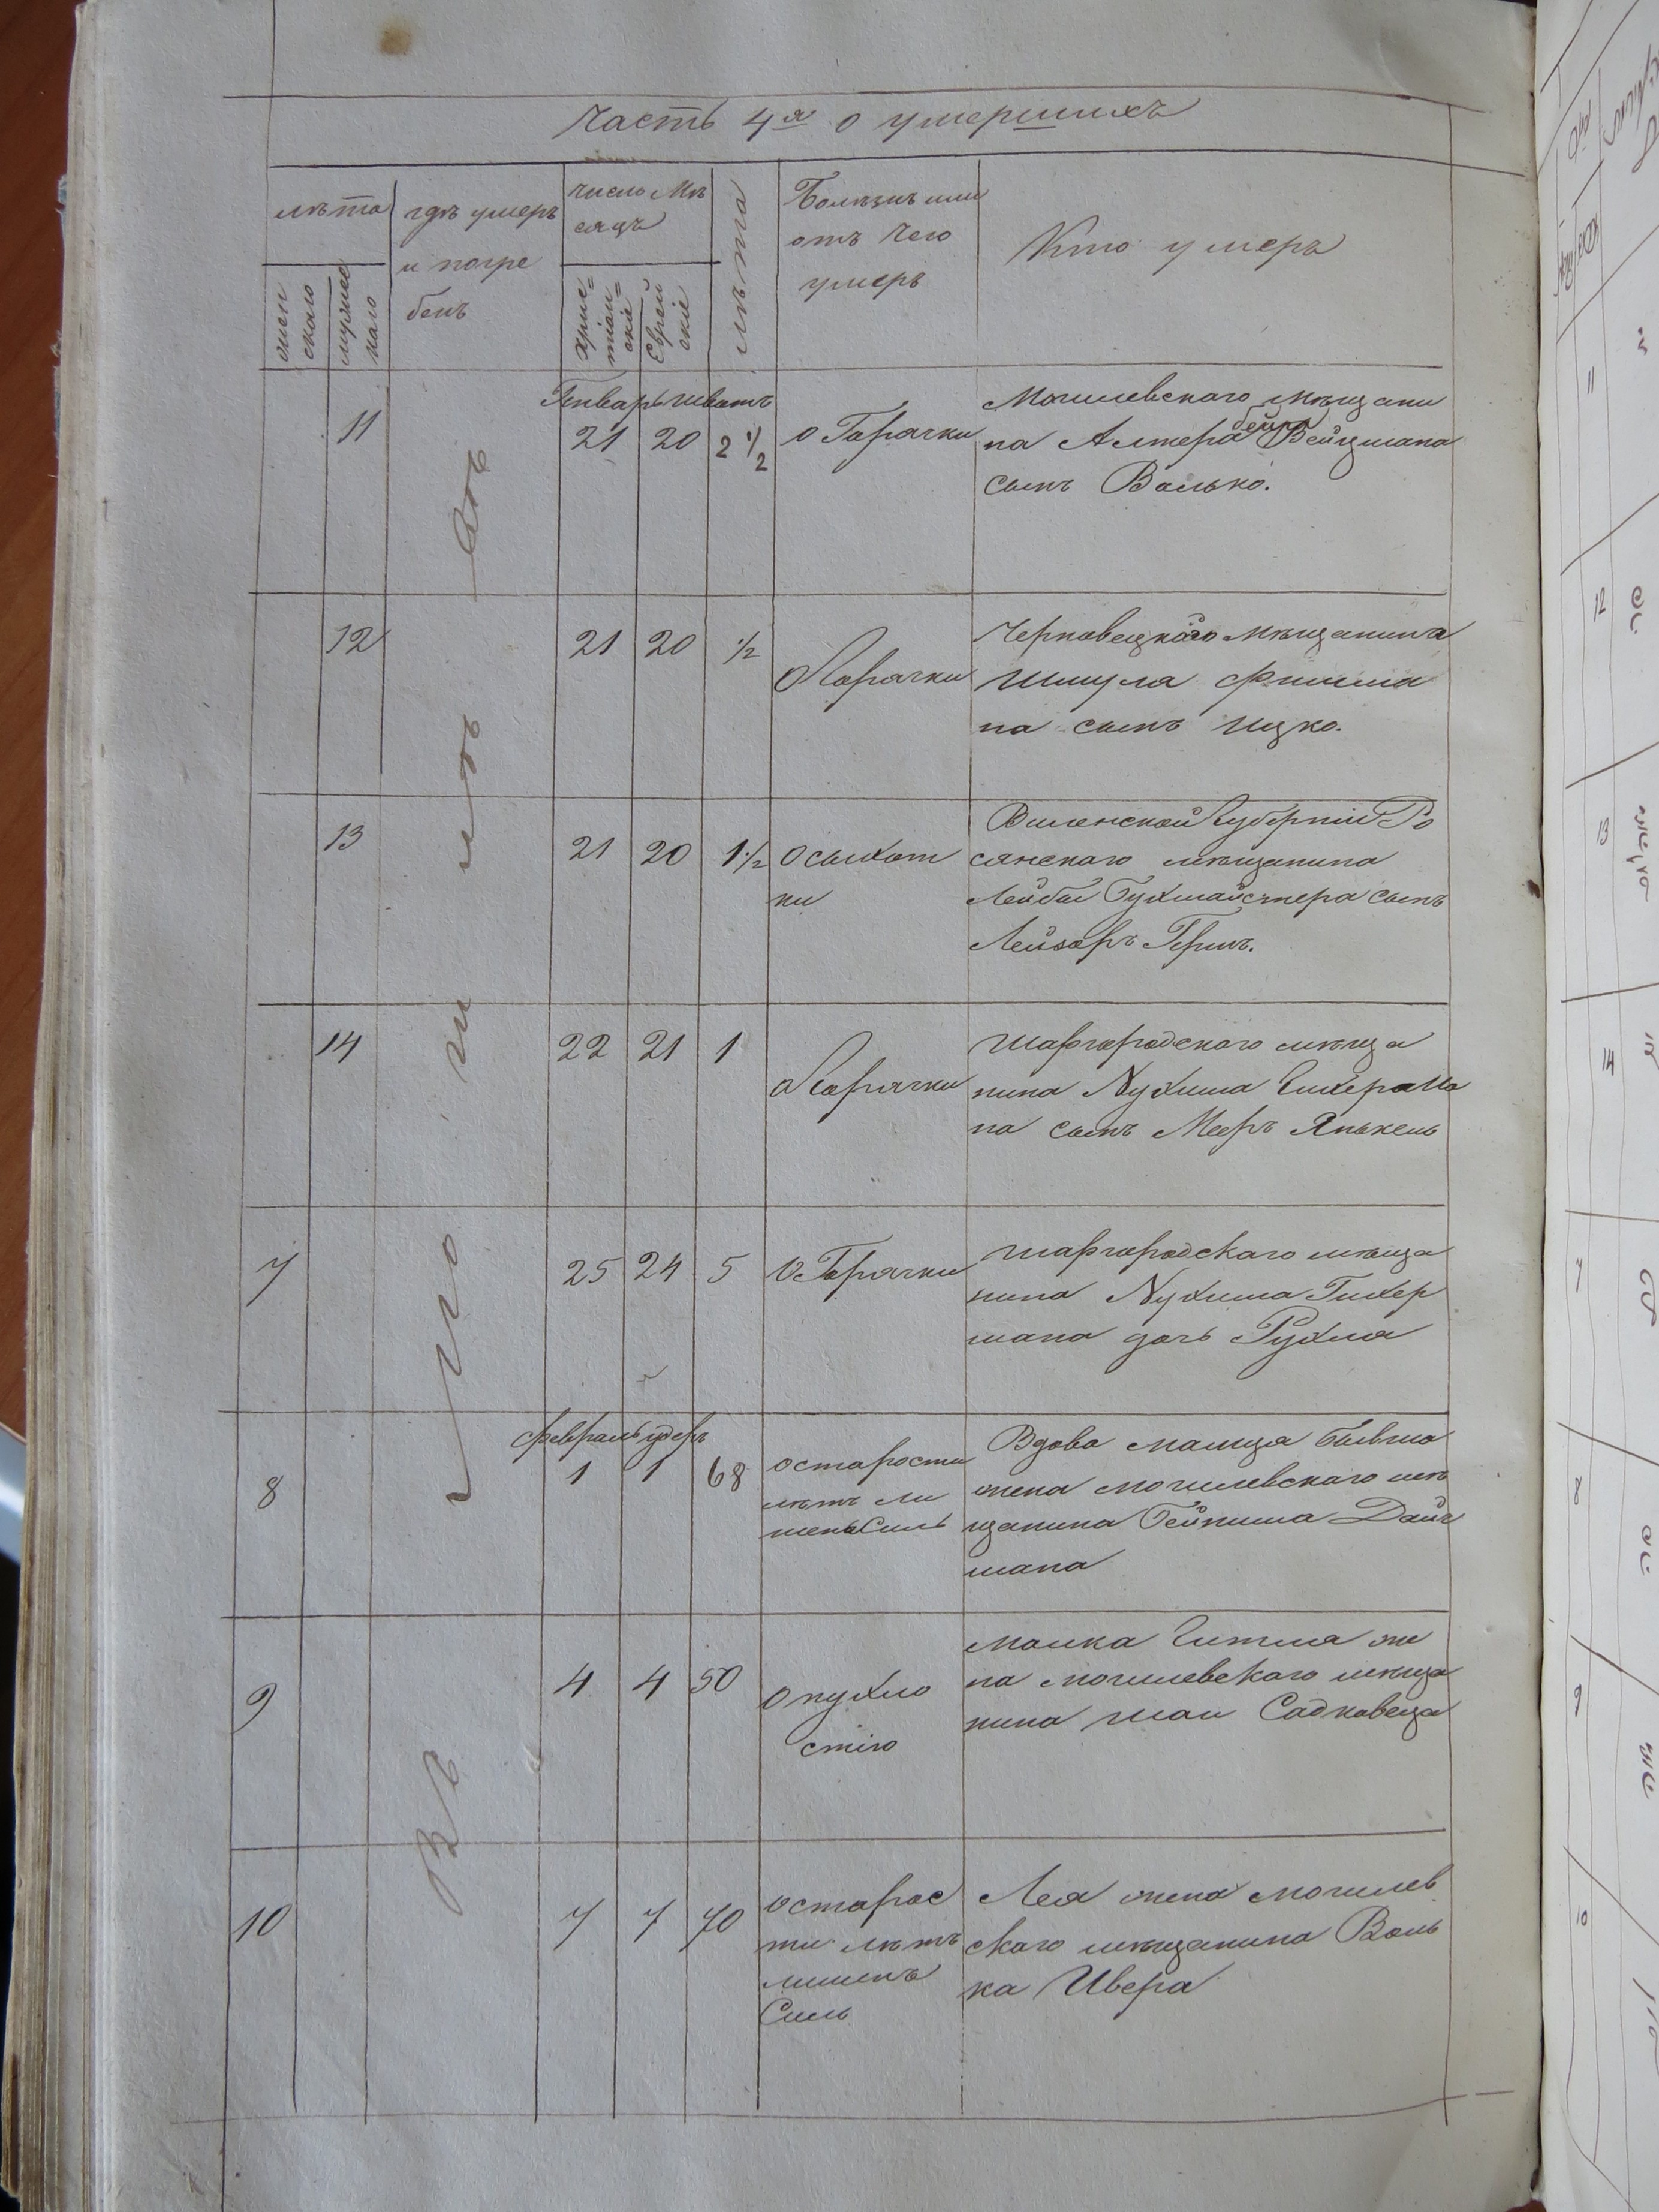 Часть 4я о умершихъ
лѣта
гдѣ умеръ
и погре
бенъ
число Мѣ
сяцъ
лѣта
Болѣзнь или
отъ чего
умеръ
Кто умеръ
женс
скаго
мужес
каго
Хрис=
тіан=
скіе
Еврей
скіе
Генварь шватъ
11 21 20 2 1/2 о Горячки
Могилевскаго мѣщани
на Алтера Бейра Вейцмана
сынъ Волько.
12 21 20 1/2 о Горячки
Черновецкого мѣщанина
Шмуля Фишма
на сынъ Ицко.
13 21 20 1 1/2 о сыхот
ки
Виленской Губерніи Ро
сянскаго мѣщанина
Лейбы Бухмайстера сынъ
Лейзоръ Гершъ.
14 22 21 1 о Горячки
Шаргородского мѣща
нина Нухима Гихерма
на сынъ Мееръ Янькель
7 25 24 5 о Горячки
Шаргородскаго мѣща
нина Нухима Гихер
мана дочь Рухля
февраль удеръ
8 1 1 68 о старости
лѣтъ ли
шенъ силь
Вдова Малця бывша
жена могилевскаго мѣ
щанина Бейниша Дайч
мана
9 4 4 50 о пухло
стію
Малка Гитля же
на могилевскаго мѣща
нина Шаи Садковеца
10 7 7 70 о старос
ти лѣтъ
лишенъ
Силь
Лея жена могилев
скаго мѣщанина Воль
ка Ивера
Въ
11
12
13
14
7
8
9
10